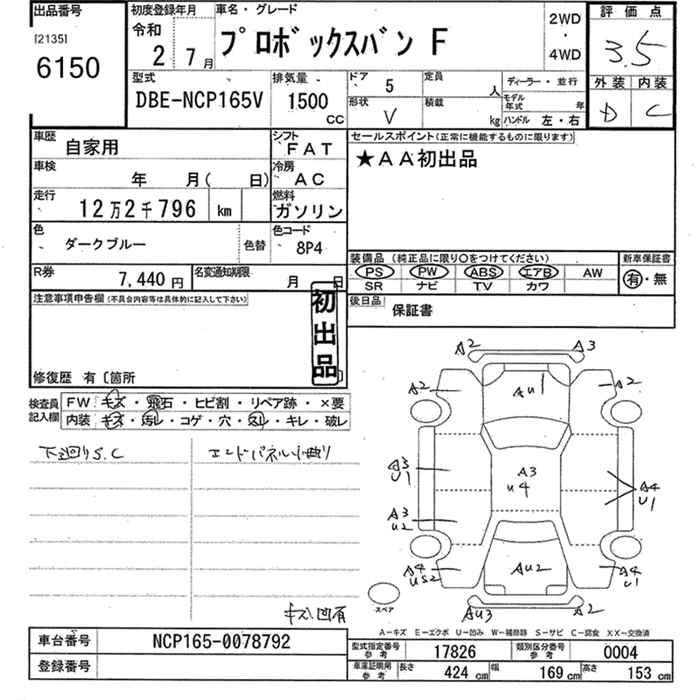 出品番号
[2135]
6150
初度登録年月
令和
2 7月
車名・グレード
プロボックスバン F
2WD
・
4WD
評価点
3.5
外装 内装
D C
型式
DBE-NCP165V
排気量
1500
CC
ドア 5
形状 V
定員 人
積載 kg
ディーラー・並行
モデル年式 年
ハンドル 左・右
車歴 自家用
シフト FAT
車検 年 月( 日)
冷房 AC
走行 12万2千796 km
燃料 ガソリン
色 ダークブルー 色替
色コード 8P4
R券 7,440円
名変通知期限 月 日
セールスポイント(正常に機能するものに限ります)
★AA初出品
装備品 (純正品に限り○をつけてください)
PS PW ABS エアB AW
SR ナビ TV カワ
新車保証書
有・無
後日品 保証書
注意事項申告欄(不具合内容等は具体的に記入して下さい)
初出品
修復歴 有〔箇所 〕
検査員記入欄
FW キズ・飛石・ヒビ割・リペア跡・×要
内装 キズ・汚レ・コゲ・穴・凹レ・キレ・破レ
下廻りS.C
エンドパネル小曲り
キズ凹有
A2 A3
A2 AU1 A2
A3 U1
A3 U4
A4 U1
A3 U2
A4 US2
AU2
A4 U1
AU3 A2
スペア
A-キズ E-エクボ U-凹み W-補修跡 S-サビ C-腐食 XX-交換済
車台番号 NCP165-0078792
登録番号
型式指定番号参考 17826
類別区分番号参考 0004
車庫証明用参考 長さ 424cm 幅 169cm 高さ 153cm